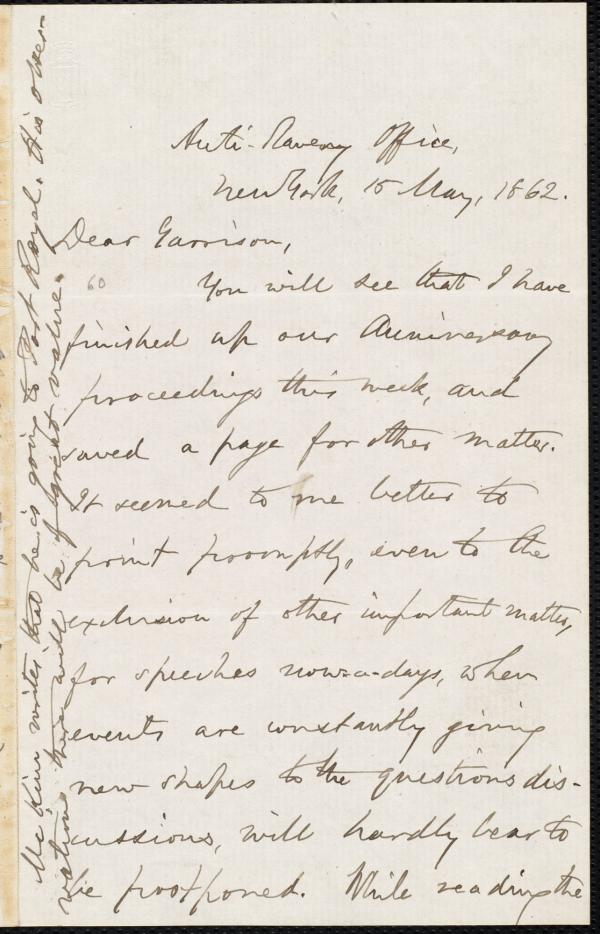 Anti-Slavery Office,
New York, 15 May, 1862.
Dear Garrison,
60
You will see that I have
finished up our Anniversary
proceedings this week, and
saved a page for other matter.
It seemed to me better to
print promptly, even to the
exclusion of other important matter,
for speeches now-a-days, when
events are constantly giving
new shapes to the questions dis-
cussions, will hardly bear to
be postponed. While reading the
McKim writes that he is going to Port Royal. His obser-
vations there will be of great value.